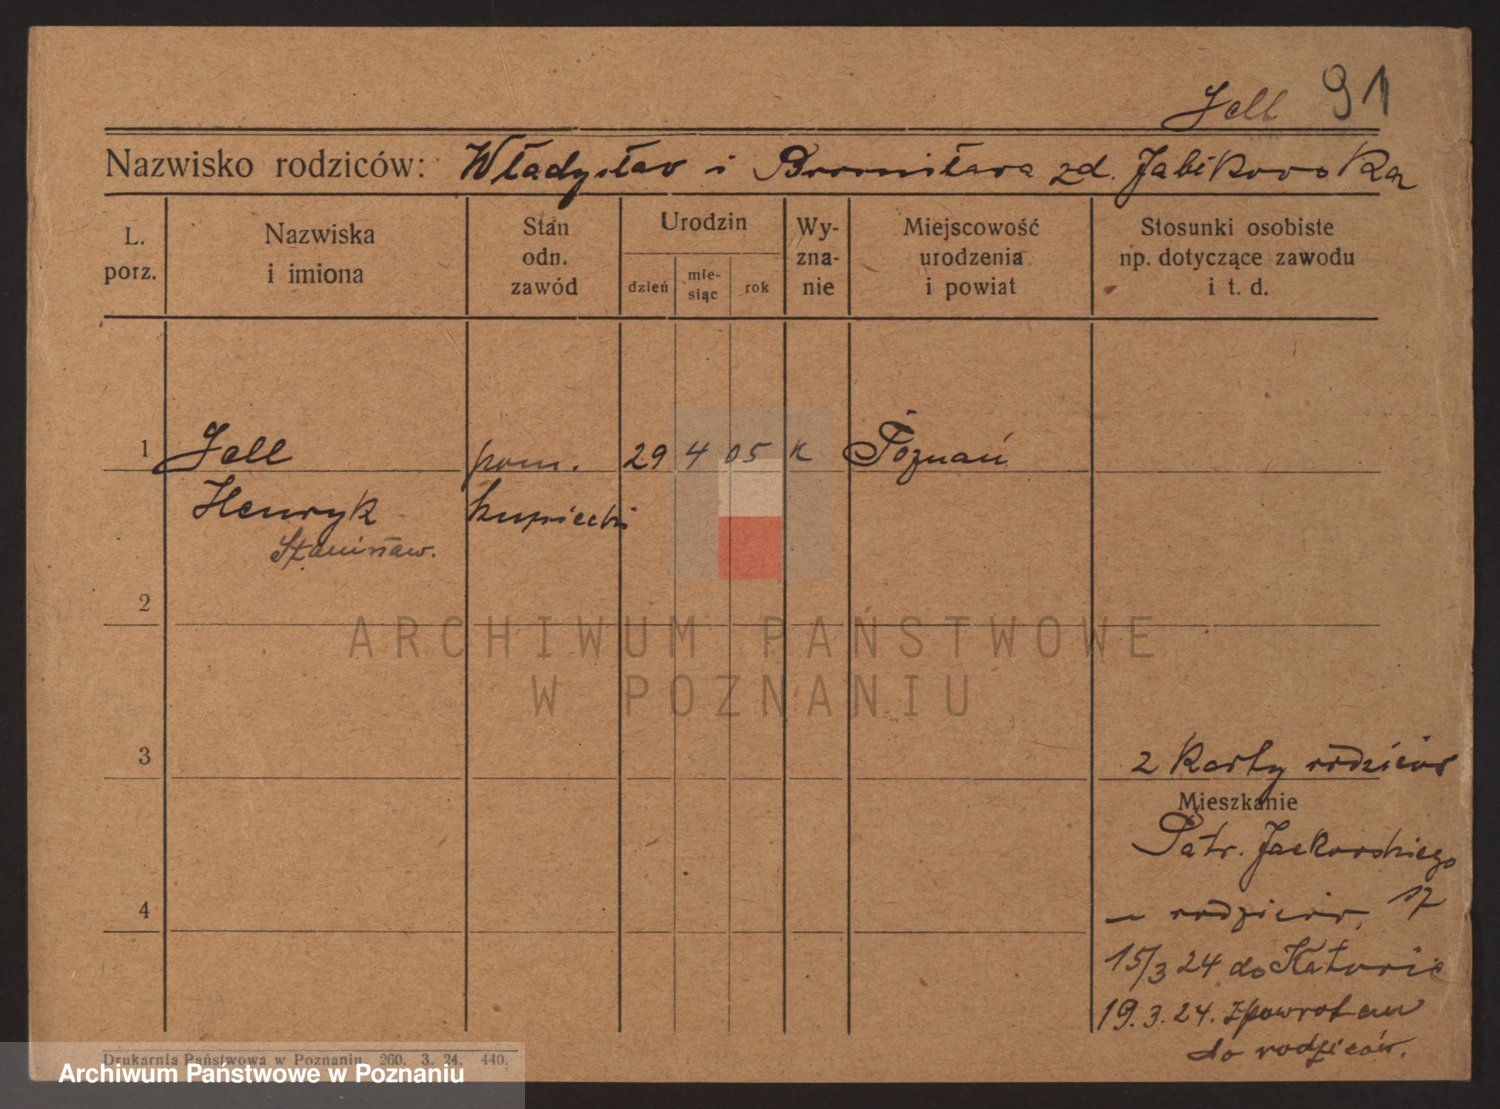 Jell 91
Nazwisko rodziców: Władysław i Bronisława zd.
L. porz.
Nazwiska i imiona
Stan odn. zawód
Urodzin
dzień
mie-siąc
rok
Wy-zna-nie
Miejscowość urodzenia i powiat
Stosunki osobiste np. dotyczące zawodu i t. d.
1 Jell pom. 29 4 05 k Poznań
Henryk kupiecki
Stanisław.
2
ARCHIWUM PAŃSTWOWE
W POZNANIU
3
z karty rodziców
Mieszkanie
Patr. Jackowskiego
4
u rodziców, 17
15/3 24 do Katowic
19.3.24. zpowrotem
do rodziców.
Drukarnia Państwowa w Poznaniu 260. 3. 24. 440.
Archiwum Państwowe w Poznaniu